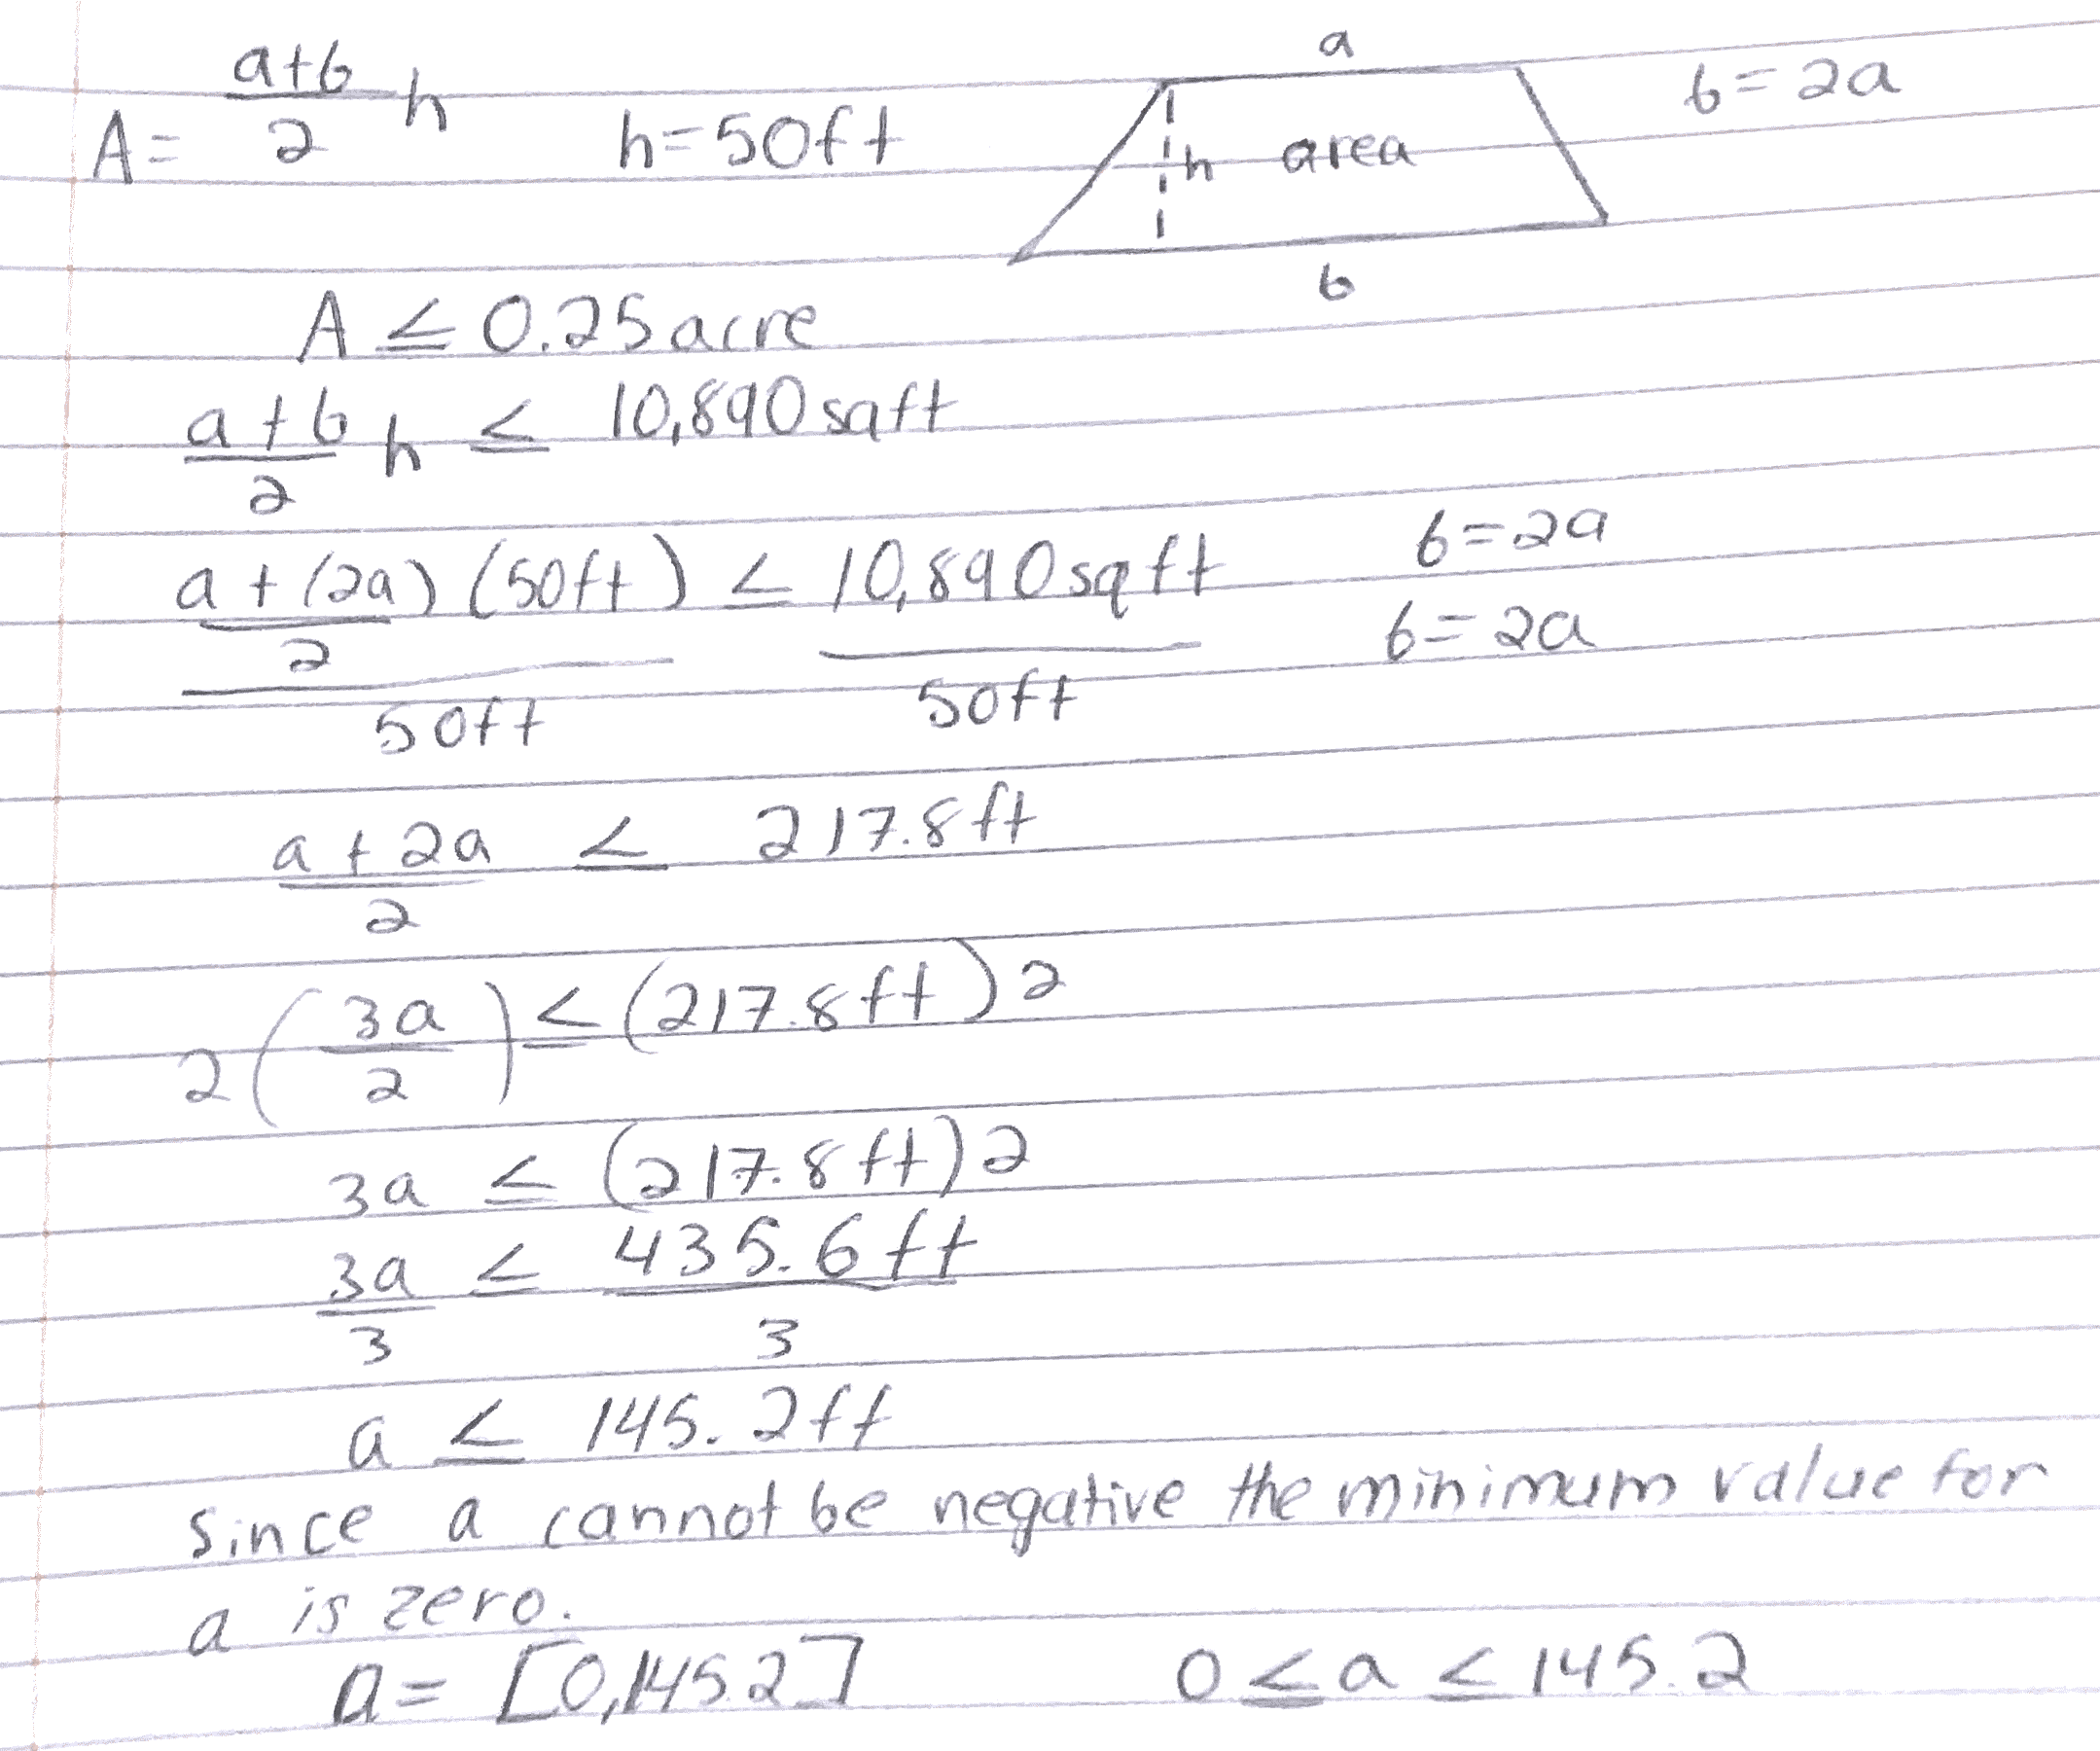 a
A = (a+b)/2 h    h=50ft    b=2a
h area
b
A ≤ 0.25 acre
(a+b)/2 h ≤ 10,890 sqft
b=2a
(a+(2a))/2 (50ft) / 50ft ≤ 10,890 sqft / 50ft
b=2a
(a+2a)/2 ≤ 217.8ft
2(3a/2) ≤ (217.8ft)2
3a ≤ (217.8ft)2
3a/3 ≤ 435.6ft/3
a ≤ 145.2ft
since a cannot be negative the minimum value for
a is zero.
a = [0,145.2]    0 ≤ a ≤ 145.2